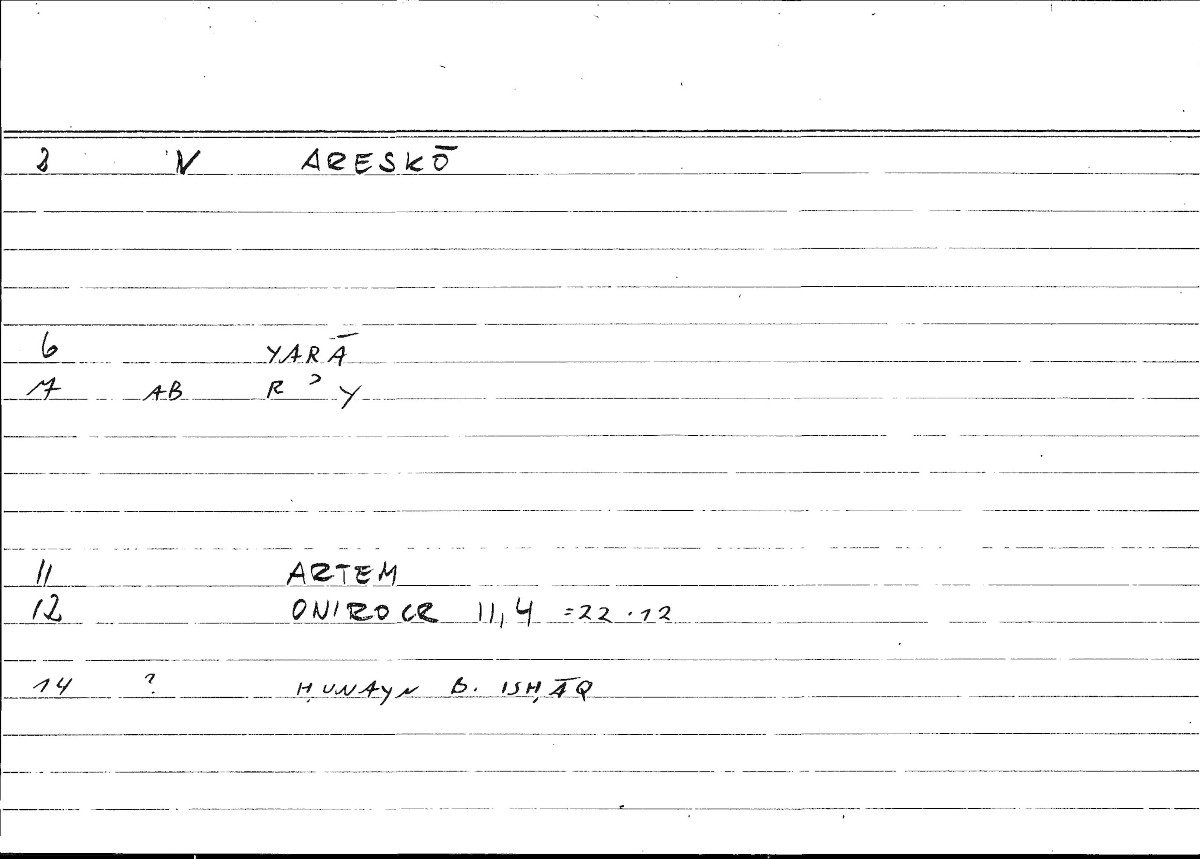 3 N ARESKŌ
6 YARĀ
7 AB R ʾ Y
11 ARTEM
12 ONIROCR 11,4 =22.12
14 ? ḤUNAYN B. ISḤĀQ